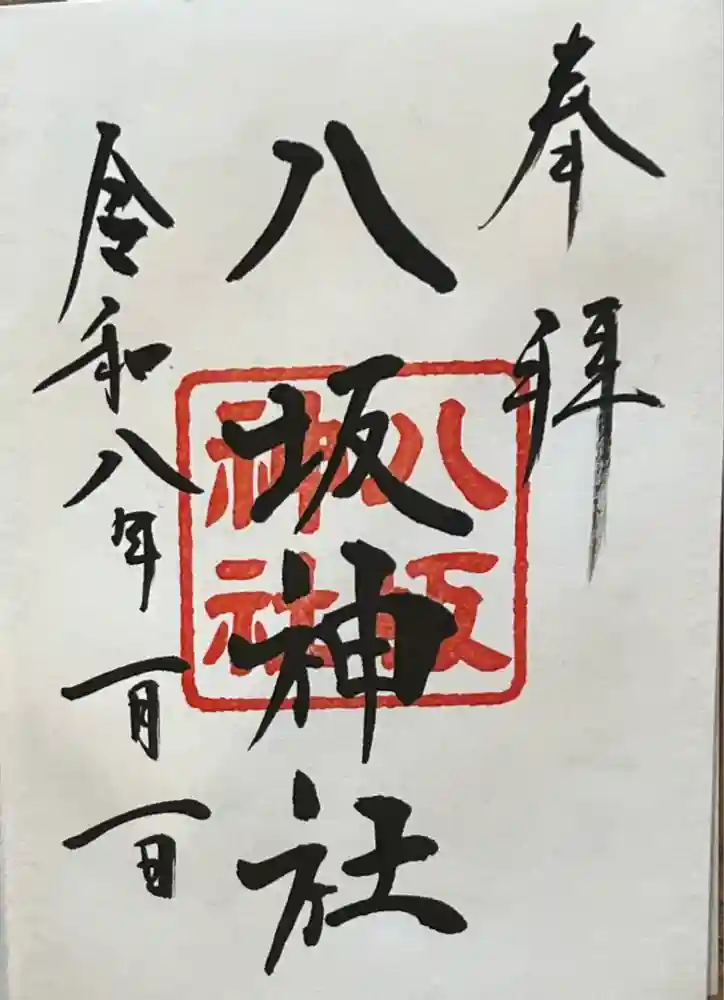 奉拝
八坂神社
八坂
神社
令和八年一月一日